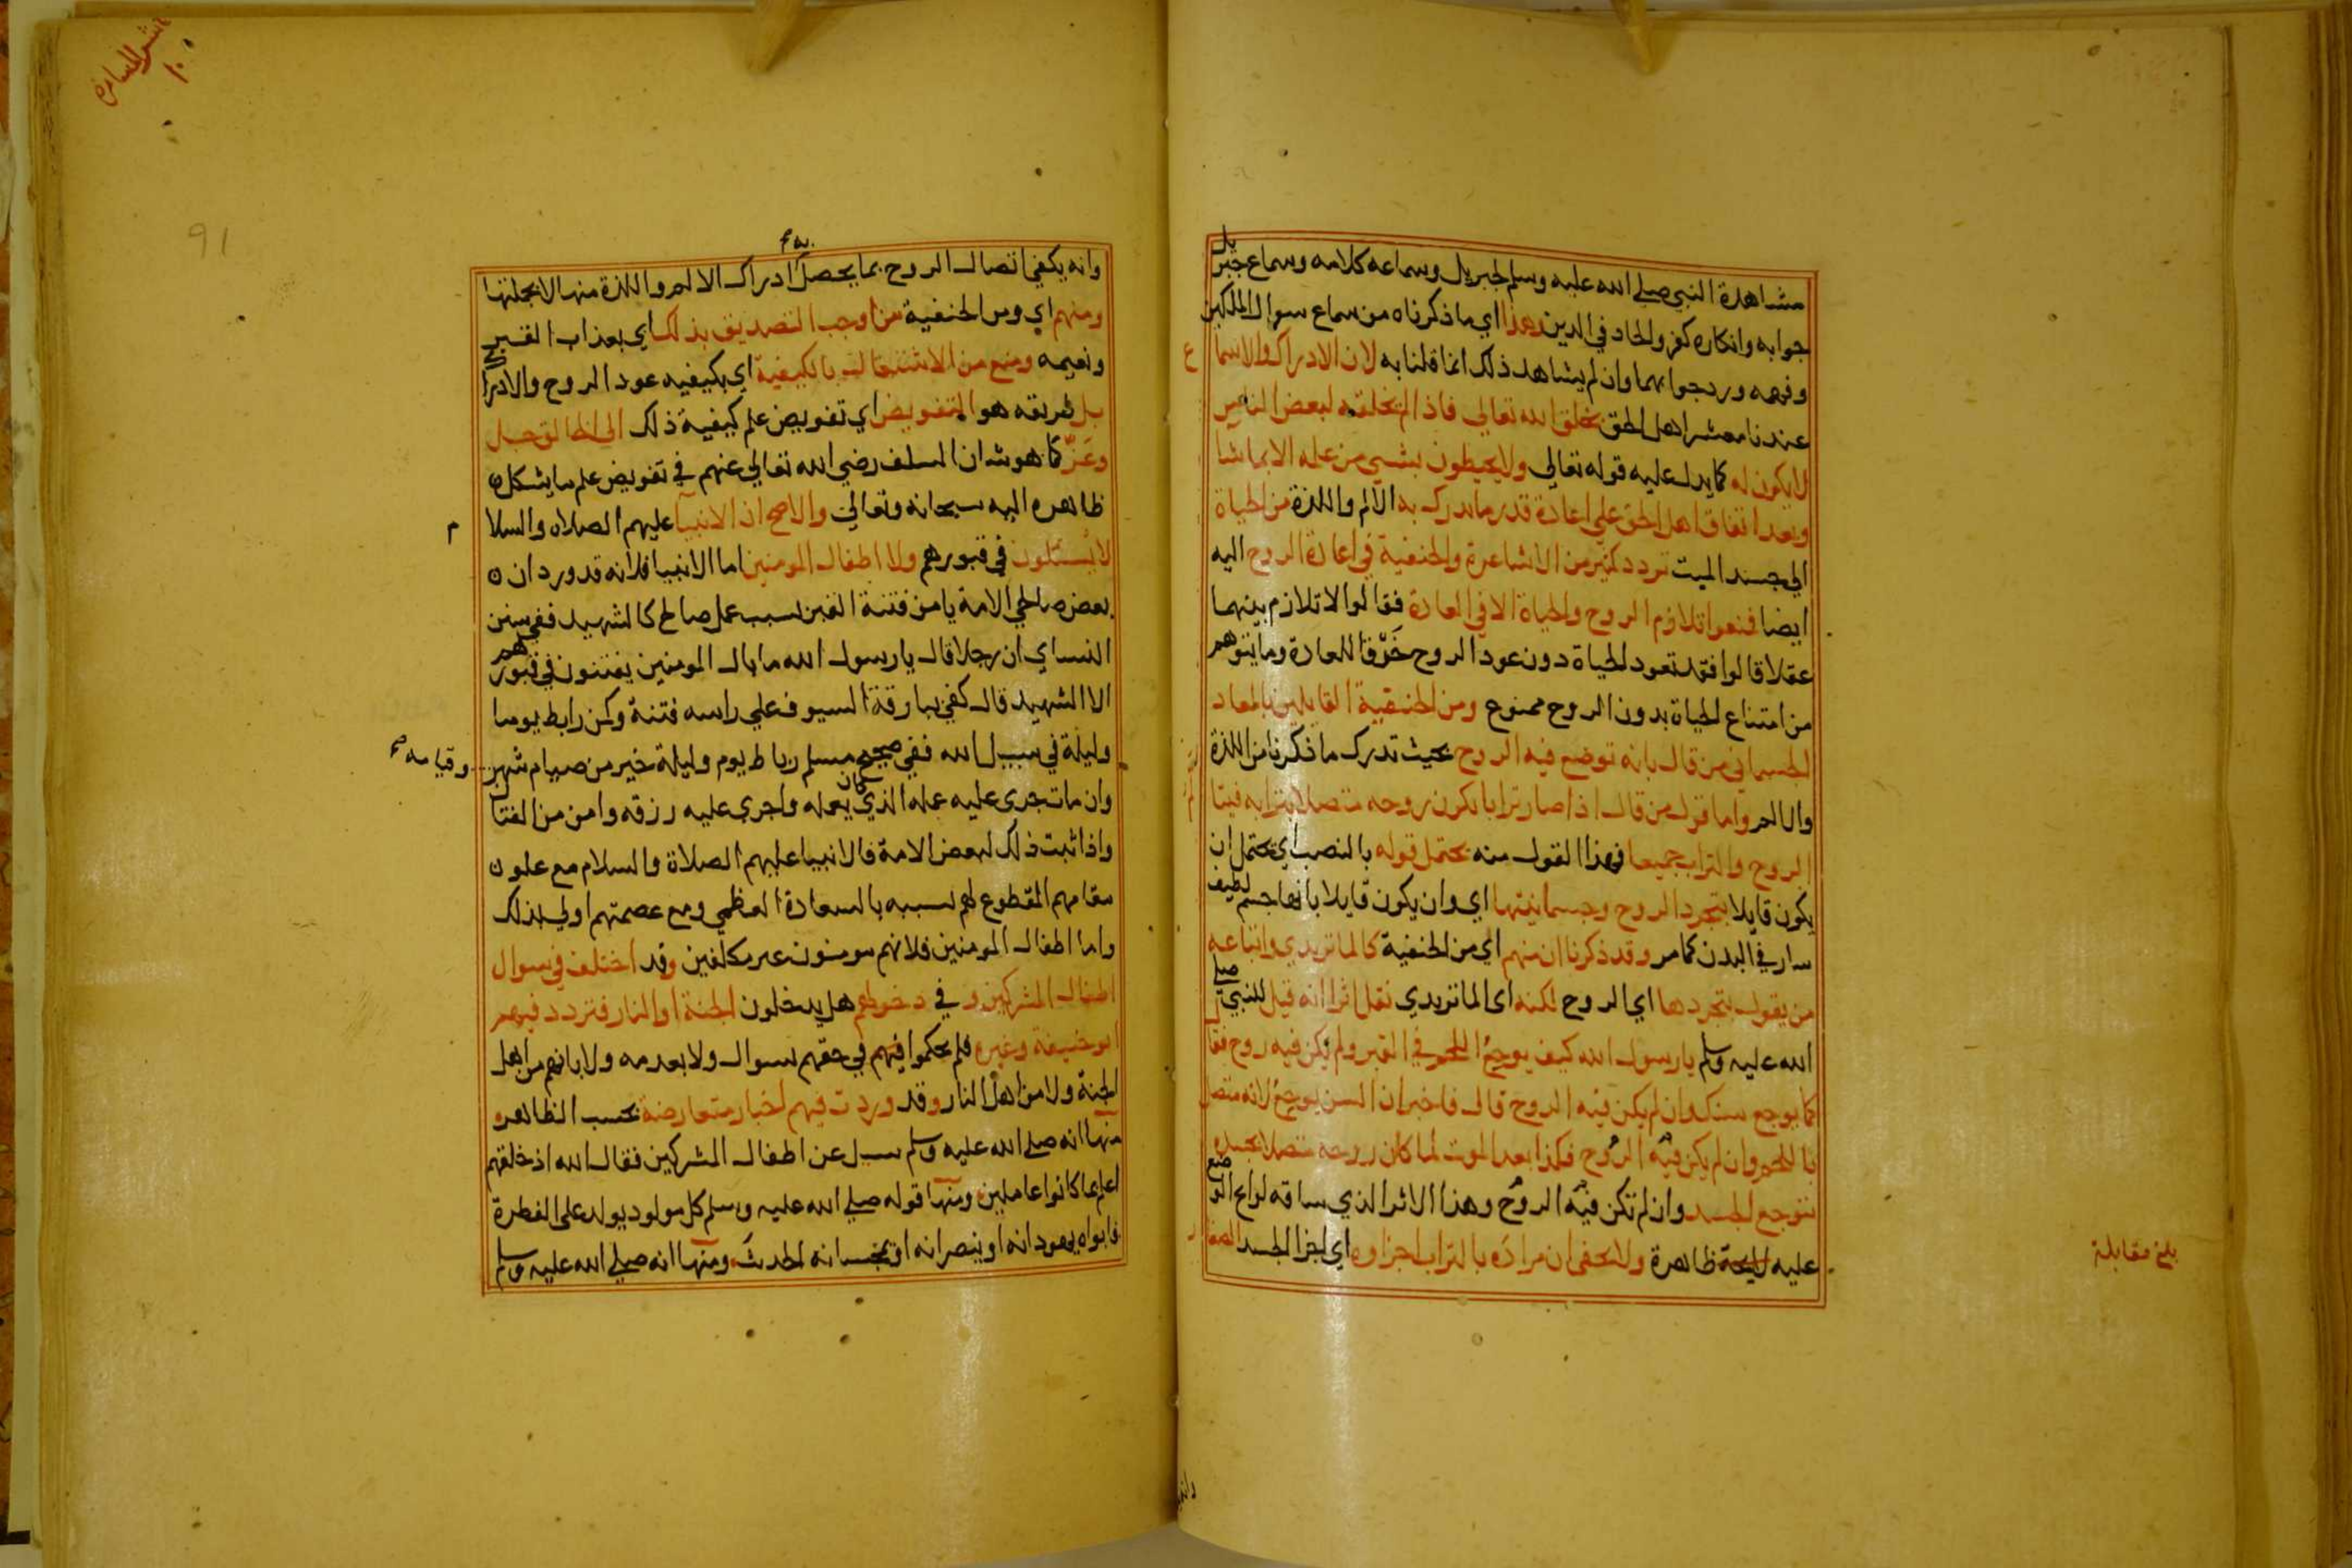 مشاهدة النبي صلى الله عليه وسلم لجبريل وسماعه كلامه وسماع جبريل
جوابه وانكاره كفر والحاد في الدين وهذا اي ما ذكرناه من سماع سوال الملكين
وفهمه ورد جوابهما وان لم يشاهد ذلك انما قلنا به لان الادراك والاسماع
عندنا معشر اهل الحق بخلق الله تعالى فاذا لم يخلقه لبعض الناس
لا يكون له كما يدل عليه قوله تعالى ولا يحيطون بشيء من علمه الا بما شا
وبعد اتفاق اهل الحق على اعادة قدر ما يدرك به الالم واللذة من الحياة
الى جسد الميت تردد كثير من الاشاعرة والحنفية في اعادة الروح اليه
ايضا فمنعوا تلازم الروح والحياة الا في العادة فقالوا لا تلازم بينهما
عقلا قالوا فقد تعود الحياة دون عود الروح خرقا للعادة وما يتوهم
من امتناع الحياة بدون الروح ممنوع ومن الحنفية القايلين بالمعاد
الجسماني من قال بانه توضع فيه الروح بحيث تدرك ما ذكرنا من اللذة
والالم واما قول من قال اذا صار ترابا يكون روحه متصلا بترابه فيتا
الروح والتراب جميعا فهذا القول منه يحتمل قوله بالنصب اي يحتمل ان
يكون قايلا بتجرد الروح وجسمانيتها اي وان يكون قايلا بانها جسم لطيف
سار في البدن كما مر وقد ذكرنا ان منهم اي من الحنفية كالماتريدي واتباعه
من يقول بتجردها اي الروح لكنه اى الماتريدي نقل اثرا انه قيل للنبي صلى
الله عليه وسلم يا رسول الله كيف يوجع اللحم في القبر ولم يكن فيه روح فقال
كما يوجع سنك وان لم يكن فيه الروح قال فاخبر ان السن يوجع لانه متصل
باللحم وان لم يكن فيه الروح فكذا بعد الموت لما كان روحه متصلا بجسده
يتوجع الجسد وان لم تكن فيه الروح وهذا الاثر الذي ساقه لوايح الوضع
عليه لايحة ظاهرة ولا يخفى ان مراده بالتراب اجزاوه اي اجزا الجسد الصغار
بلغ مقابلة
وانه يكفي اتصال الروح بما يحصل به ادراك الالم واللذة منها لا بجملتها
ومنهم اي ومن الحنفية من اوجب التصديق بذلك اي بعذاب القبر
ونعيمه ومنع من الاشتغال بالكيفية اي بكيفيه عود الروح والادراك
بل طريقه هو التفويض اي تفويض علم كيفية ذلك الى الخالق جل
وعز كما هو شان السلف رضي الله تعالى عنهم في تفويض علم ما يشكل
ظاهره اليه سبحانه وتعالى والاصح ان الانبيا عليهم الصلاه والسلام
لا يسئلون في قبورهم ولا اطفال المومنين اما الانبيا فلانه قد ورد ان
بعض صالحي الامة يامن فتنة القبر بسبب عمل صالح كالشهيد ففي سنن
النسائ ان رجلا قال يا رسول الله ما بال المومنين يفتنون في قبورهم
الا الشهيد قال كفى ببارقة السيوف على راسه فتنة وكمن رابط يوما
وليلة في سبيل الله ففي صحيح مسلم رباط يوم وليلة خير من صيام شهر وقيامه صح
وان مات جرى عليه عمله الذي كان يعمله واجري عليه رزقه وامن من الفتا
واذا ثبت ذلك لبعض الامة فالانبيا عليهم الصلاة والسلام مع علو
مقامهم المقطوع لهم بسببه بالسعادة العظمى ومع عصمتهم اولى بذلك
واما اطفال المومنين فلانهم مومنون غير مكلفين وقد اختلف في سوال
اطفال المشركين وفي دخولهم هل يدخلون الجنة او النار فتردد فيهم
ابو حنيفة وغيره فلم يحكموا فيهم في حقهم بسوال ولا بعدمه ولا بانهم من اهل
الجنة ولا من اهل النار وقد وردت فيهم اخبار متعارضة بحسب الظاهر
منها انه صلى الله عليه وسلم سيل عن اطفال المشركين فقال الله اذ خلقهم
اعلم بما كانوا عاملين ومنها قوله صلى الله عليه وسلم كل مولود يولد على الفطرة
فابواه يهودانه او ينصرانه او يمجسانه الحديث ومنها انه صلى الله عليه وسلم
91